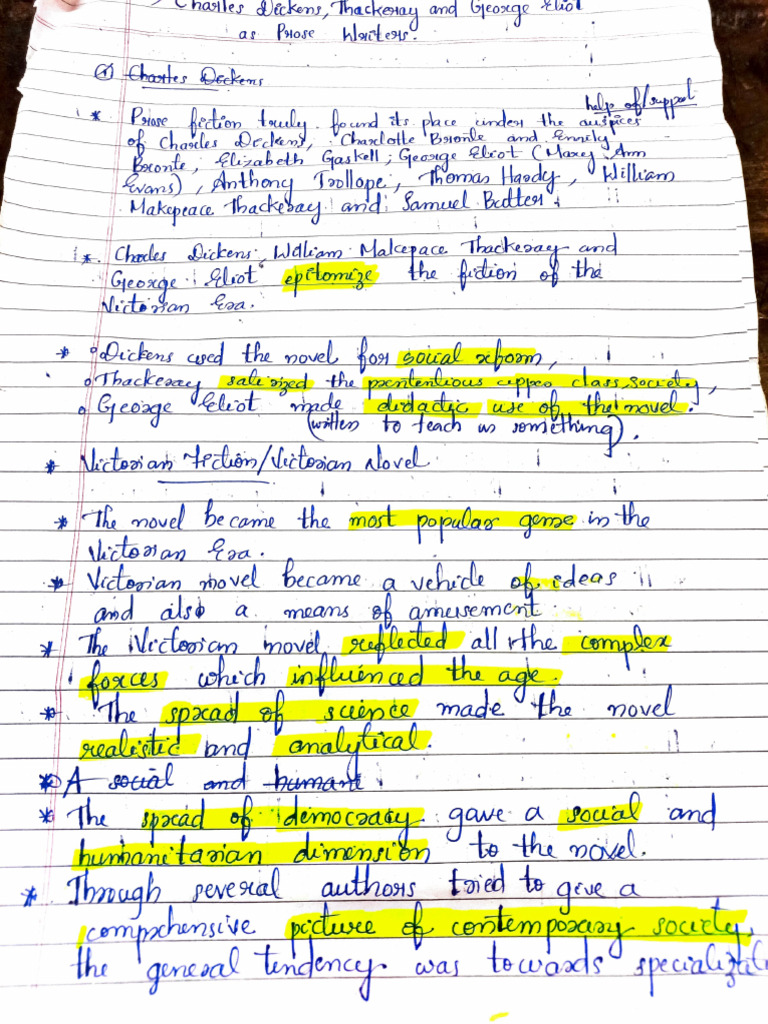 Charles Dickens, Thackeray and George Eliot
as Prose Writers.
Charles Dickens
help of/support
* Prose fiction truly found its place under the auspices
of Charles Dickens, Charlotte Bronte and Emily
Bronte, Elizabeth Gaskell, George Eliot (Mary Ann
Evans), Anthony Trollope, Thomas Hardy, William
Makepeace Thackeray and Samuel Butter.
*. Charles Dickens, William Makepace Thackeray and
George Eliot epitomize the fiction of the
Victorian Era.
* Dickens used the novel for soical reform,
Thackeray satirized the pententious uppeo class society,
George Eliot made didactic use of the novel.
(written to teach us something).
* Victorian Fiction/Victorian Novel
* The novel became the most popular genre in the
Victorian Era.
* Victorian novel became a vehicle of ideas
and also a means of amusement
* The Victorian novel reflected all the complex
forces which influenced the age.
* The spread of science made the novel
realistic and analytical.
* A social and human
* The spread of democracy gave a social and
humanitarian dimension to the novel.
* Through several authors tried to give a
comprehensive picture of contemporary society,
the general tendency was towards